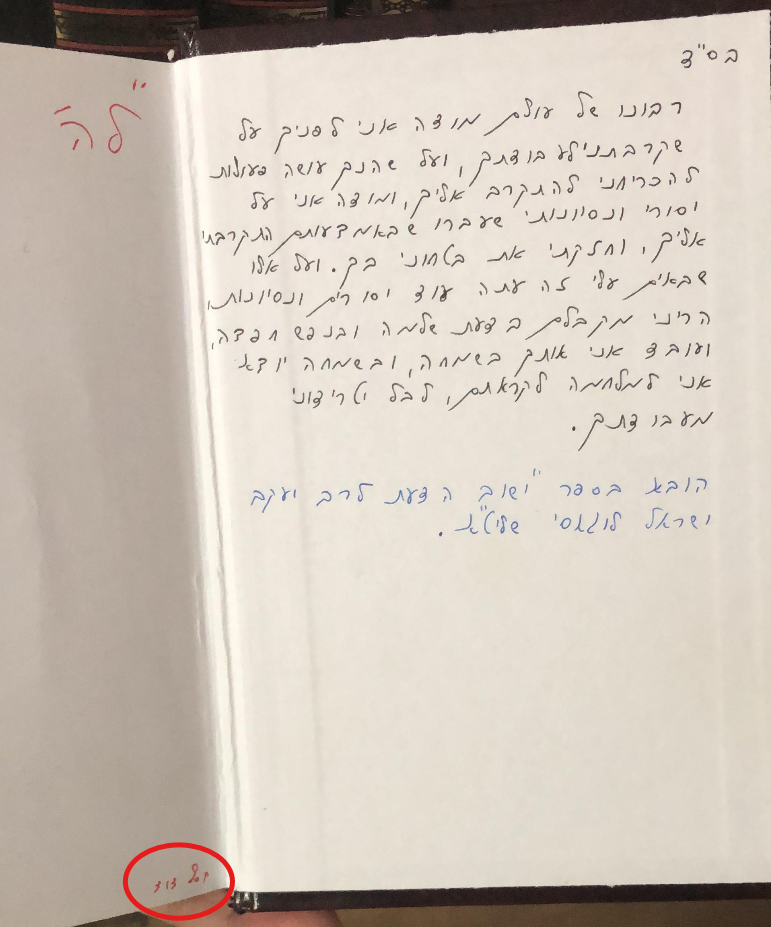 בס"ד
רבונו של עולם מודה אני לפניך על
שקרבתני לעבודתך, ועל שהנך עושה פעולות
להכריחני להתקרב אליך, ומודה אני על
יסורי ונסיונותי שעברו שבאמצעותם התקרבתי
אליך, וחזקתי את בטחוני בך. ועל אלו
שבאים עלי זה עתה עוד יסורים ונסיונות,
הריני מקבלם בדעת שלמה ובנפש חפצה,
ועובד אני אותך בשמחה, ובשמחה יוצא
אני למלחמה לקראתם, לבל יטרידוני
מעבודתך.
הובא בספר "ישוב הדעת לרב יעקב
ישראל לוגאסי שליט"א.
לה
דוד